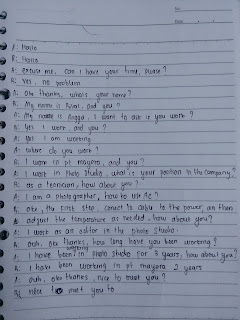 No.
Date
A: Hallo
B: Hallo
A: excuse me, can I have your time, please?
B: Yes, no problem
A: Oke thanks, whats your name?
B: My name is Rival, and you?
A: My name is Angga, I want to ask it you work?
B: Yes I work, and you?
A: Yes I am working
A: where do you work?
B: I work in pt mayora, and you?
A: I work in Photo Studio, what is your position in the company?
B: as a tecnician, how about you?
A: I am a photographer, how to use Ac?
B: oke, the first step, conect to cable to the power, an then
adjust the temperature as needed, how about you?
A: I work as an editor in the photo studio.
B: ouh, oke thanks, how long have you been working?
A: I have been working in photo studio for 3 years, how about you?
B: I have been working in pt mayora 2 years
A: ouh, oke thanks, nice to meet you?
B: nice to met you to